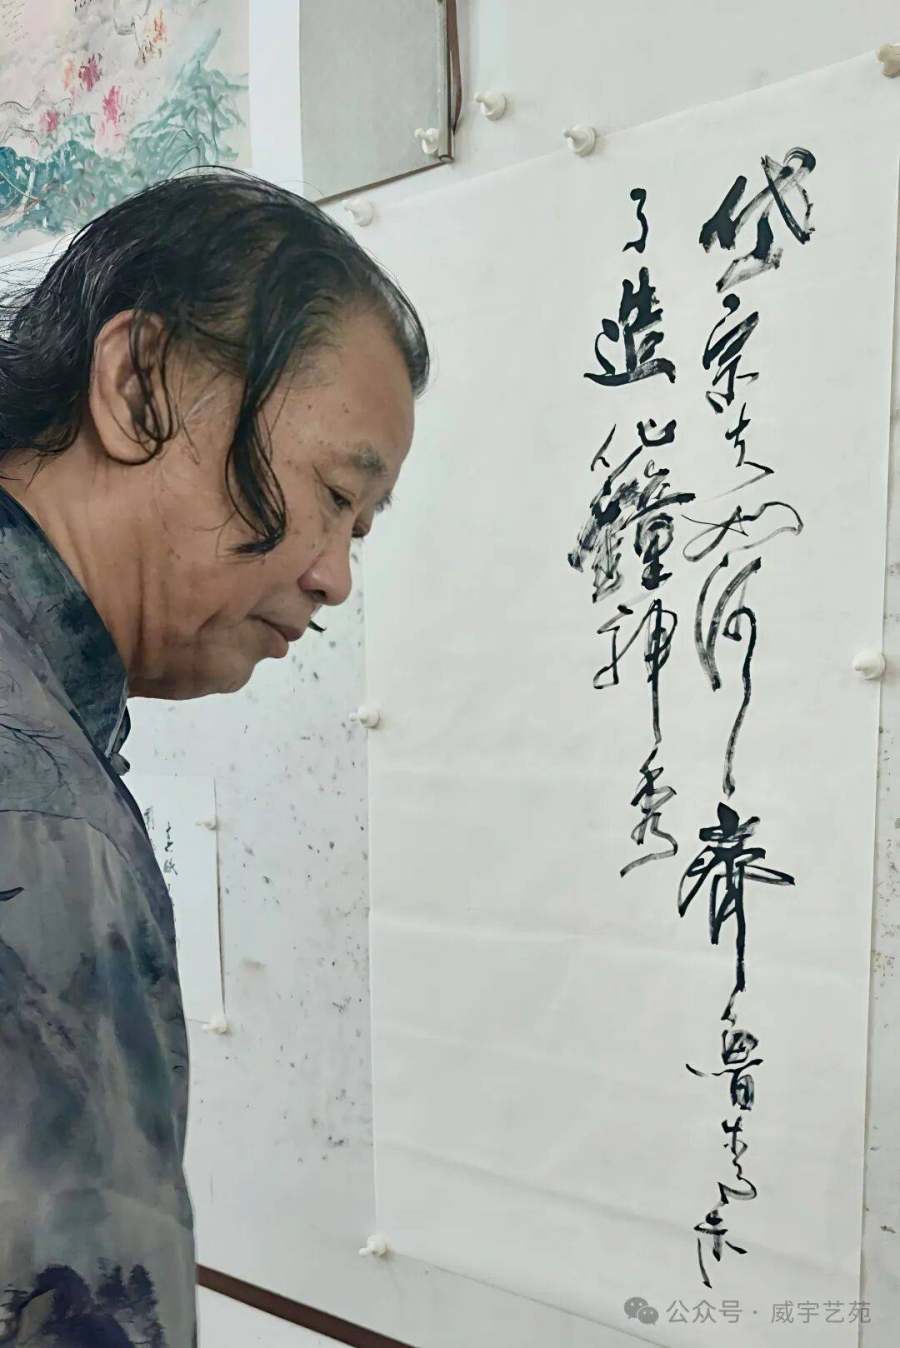 岱宗夫如何齊魯青未
了造化鐘神秀
公众号 · 威宇艺苑